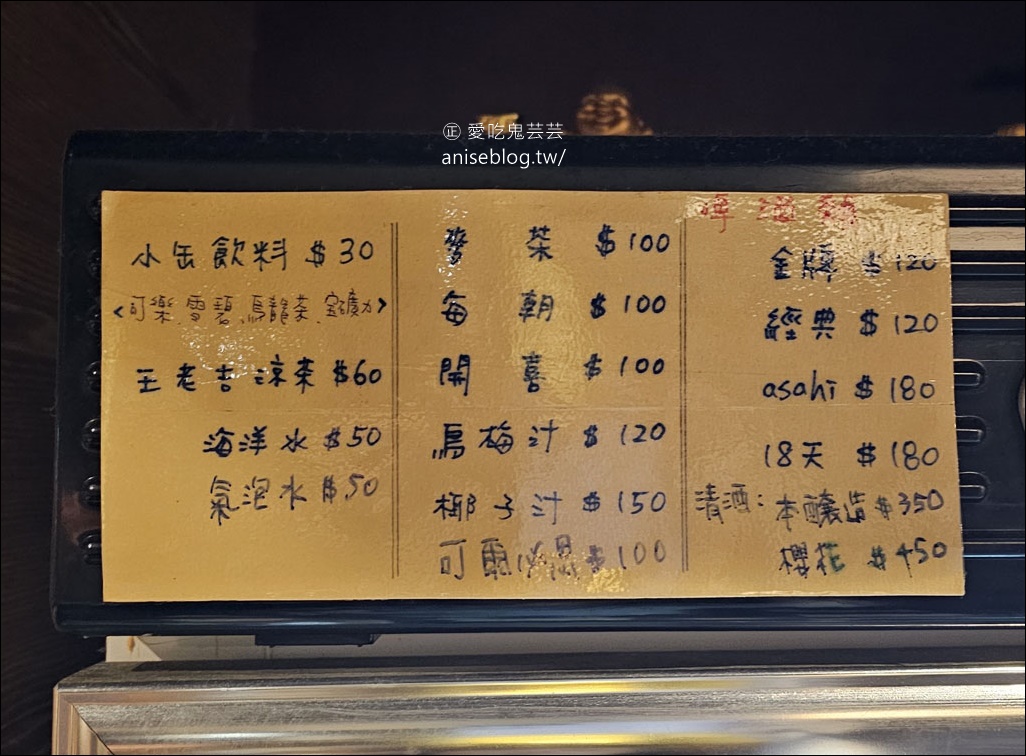 ㊣ 愛吃鬼芸芸
aniseblog.tw/
小缶飲料 $30
<可樂、雪碧、烏龍茶、宝礦力>
王老吉涼茶 $60
海洋水 $50
氣泡水 $50
麥茶 $100
每朝 $100
開喜 $100
烏梅汁 $120
椰子汁 $150
可爾必思 $100
金牌 $120
經典 $120
asahi $180
18天 $180
清酒: 本釀造 $350
櫻花 $450